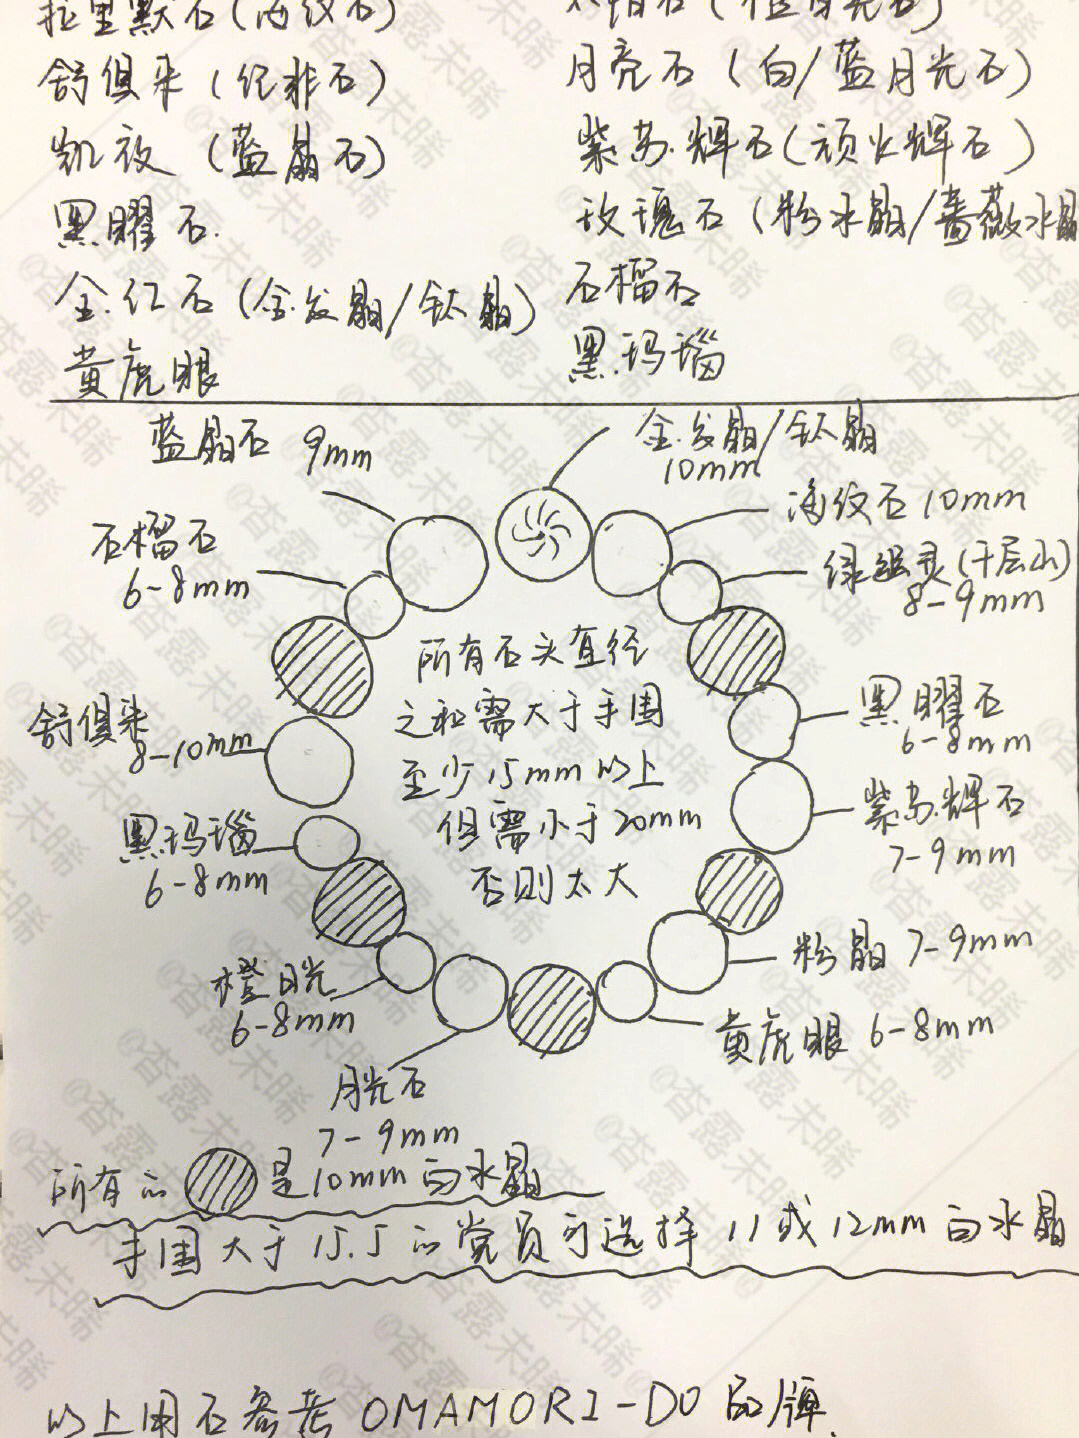 拉里默石(海纹石)
舒俱来(经非石)
月亮石(白/蓝月光石)
凯玫(蓝晶石)
紫苏辉石(顽火辉石)
黑曜石
玫瑰石(粉水晶/蔷薇水晶
金红石(金发晶/钛晶)
石榴石
黄虎眼
黑玛瑙
蓝晶石 9mm
金发晶/钛晶
10mm
海纹石 10mm
石榴石
6-8mm
绿幽灵(千层山)
8-9mm
所有石头直径
之和需大于手围
至少15mm以上
但需小于20mm
否则太大
舒俱来
8-10mm
黑曜石
6-8mm
紫苏辉石
7-9mm
黑玛瑙
6-8mm
粉晶 7-9mm
橙月光
6-8mm
黄虎眼 6-8mm
月光石
7-9mm
所有的 是10mm白水晶
手围大于15.5的党员可选择 11或12mm白水晶
以上用石参考OMAMORI-DO品牌
@杳露未晞